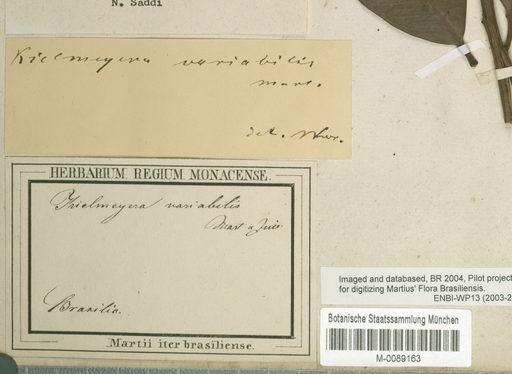 N. Saddi
Kielmeyera variabilis
Mart.
det. Wwr.
HERBARIUM REGIUM MONACENSE.
Kielmeyera variabilis
Mart & Zucc
Brasilia.
Martii iter brasiliense.
Imaged and databased, BR 2004, Pilot project
for digitizing Martius' Flora Brasiliensis.
ENBI-WP13 (2003-2
Botanische Staatssammlung München
M-0089163